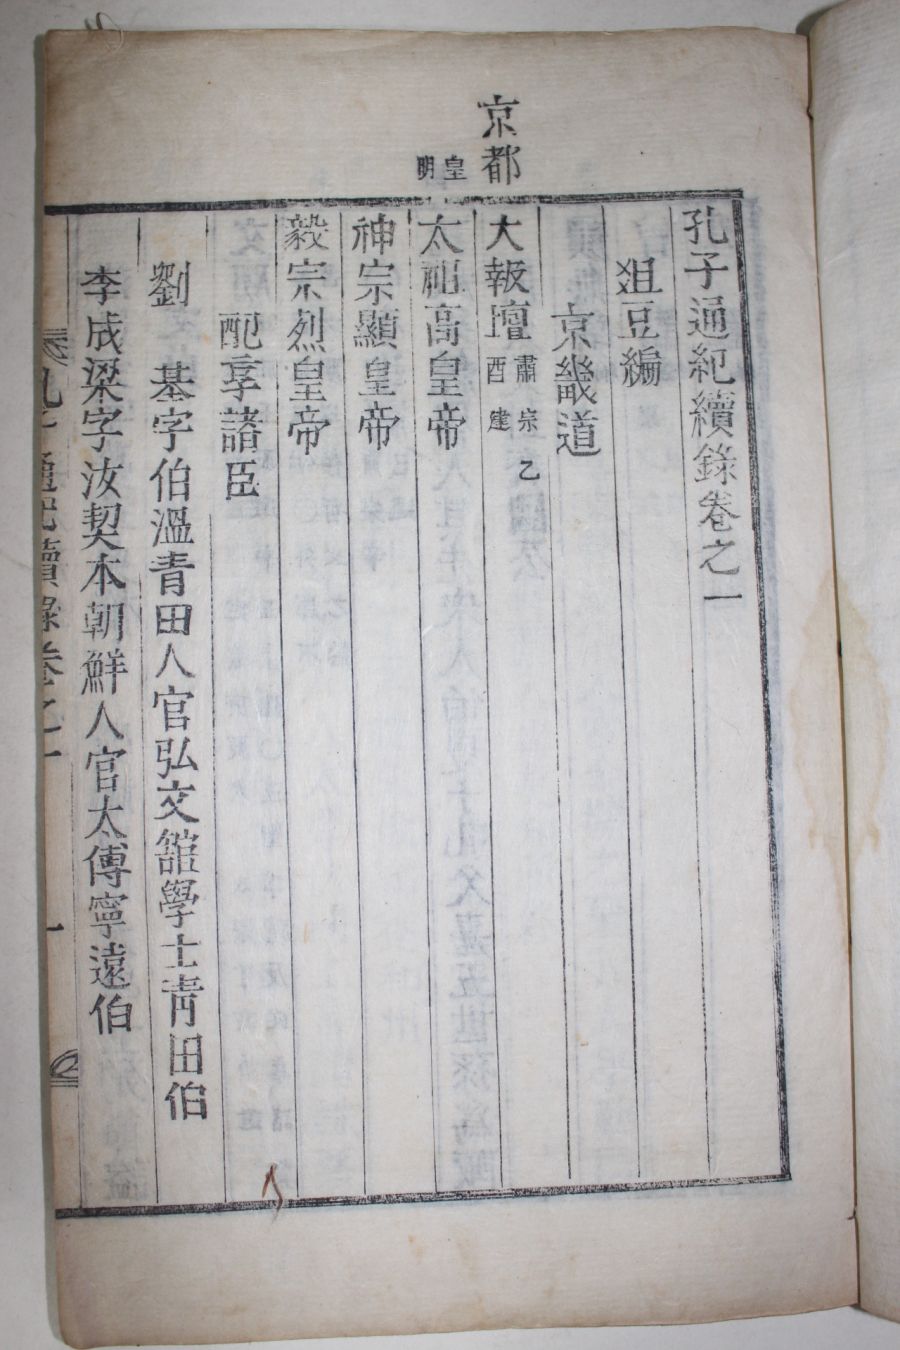 孔子通紀續錄卷之一
俎豆編
京畿道
京都
大報壇 肅宗乙酉建
皇明
太祖高皇帝
神宗顯皇帝
毅宗烈皇帝
配享諸臣
劉 基字伯溫青田人官弘文館學士青田伯
李成梁字汝契本朝鮮人官太傅寧遠伯
孔子通紀續錄卷之一 一